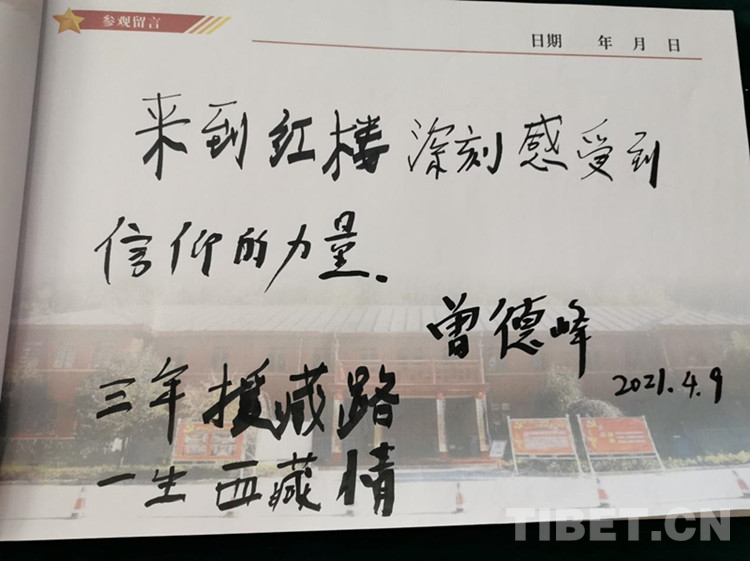 参观留言
日期 年 月 日
来到红楼深刻感受到
信仰的力量.
曾德峰
2021.4.9
三年援藏路
一生西藏情
TIBET.CN